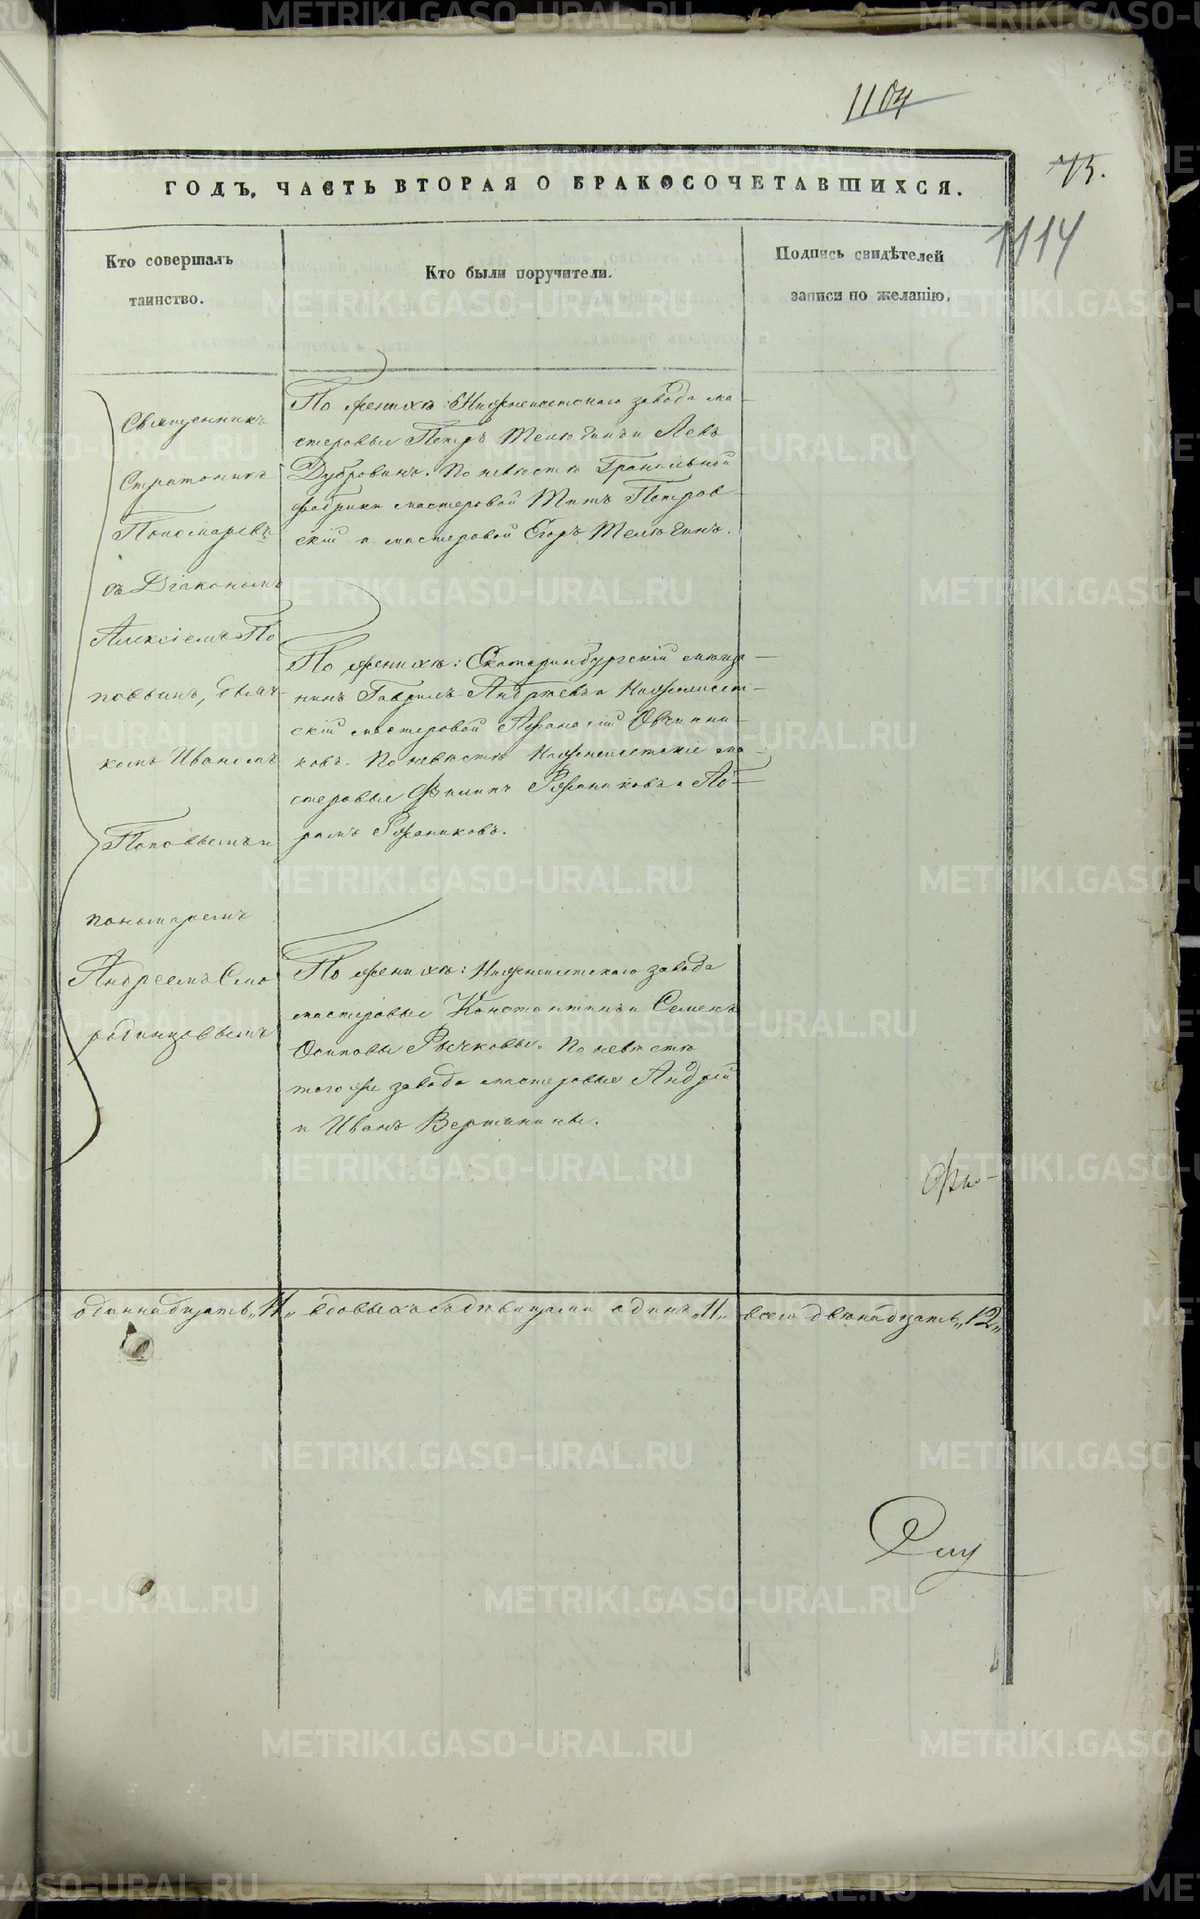 1104
75.
1114
ГОДЪ, ЧАСТЬ ВТОРАЯ О БРАКОСОЧЕТАВШИХСЯ.
Кто совершалъ
таинство.
Кто были поручители.
Подпись свидѣтелей
записи по желанію.
Священникъ
Стратоникъ
Пономаревъ
съ Діакономъ
Алексіемъ По
повымъ, дьяч-
комъ Иваномъ
Поповымъ и
пономаремъ
Андреемъ Смо
родинцовымъ
По женихѣ: Нижнеисетскаго завода ма-
стеровые Петръ Телюгинъ и Левъ
Дубровинъ. По невѣстѣ Гранильной
фабрики мастеровой Титъ Петров-
скій и мастеровой Егоръ Телюгинъ.
По женихѣ: Екатеринбургскій мѣща-
нинъ Гаврилъ Андреевъ и Нижнеисет-
скій мастеровой Афанасій Овчинни-
ковъ. По невѣстѣ Нижнеисетскіе ма-
стеровые Филипъ Ряфаниковъ
рамъ Ряфаниковъ.
По женихѣ: Нижнеисетскаго завода
мастеровые Константинъ и Семенъ
Осиповы Рычковы. По невѣстѣ
тогоже завода мастеровые Андрей
и Иванъ Вершинины.
одиннадцать „11„ вдовыхъ съ дѣвицами одинъ „1„ всего двѣнадцать „12„
METRIKI.GASO-URAL.RU